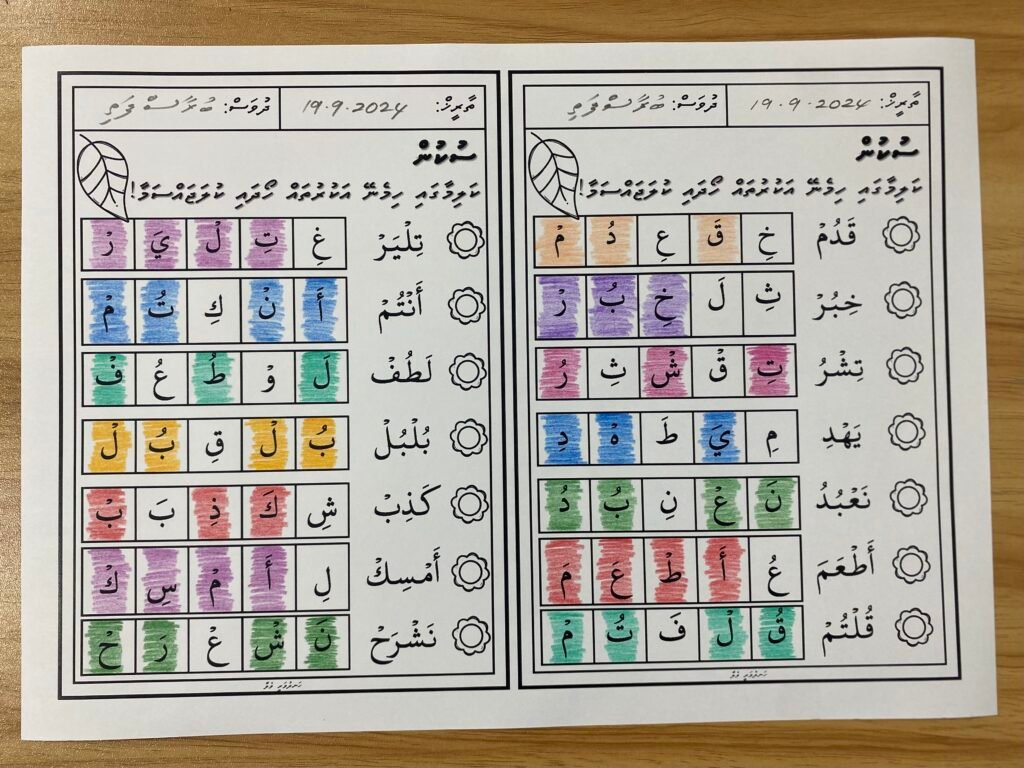 ތާރީޚް: 19.9.2024 ދުވަސް: ބުރާސްފަތި
ސުކުން
ކަލިމާގައި ހިމެނޭ އަކުރުތައް ހޯދައި ކުލަޖައްސަމާ!
قَدُمْ خِ قَ عِ دُ مْ
خِبُرْ ثِ لَ خِ بُ رْ
تِشْرُ تِ قْ شْ ثِ رُ
يَهْدِ مِ يَ طَ هْ دِ
نَعْبُدُ نَ عْ نِ بُ دُ
أَطْعَمَ عُ أَ طْ عَ مَ
قُلْتُمْ قُ لْ فَ تُ مْ
ތާރީޚް: 19.9.2024 ދުވަސް: ބުރާސްފަތި
ސުކުން
ކަލިމާގައި ހިމެނޭ އަކުރުތައް ހޯދައި ކުލަޖައްސަމާ!
تِلْيَرْ غِ تِ لْ يَ رْ
أَنْتُمْ أَ نْ كِ تُ مْ
لَطُفْ لَ وْ طُ عُ فْ
بُلْبُلْ بُ لْ قِ بُ لْ
كَذِبْ شِ كَ ذِ بَ بْ
أَمْسِكْ لِ أَ مْ سِ كْ
نَشْرَحْ نَ شْ غْ رَ حْ